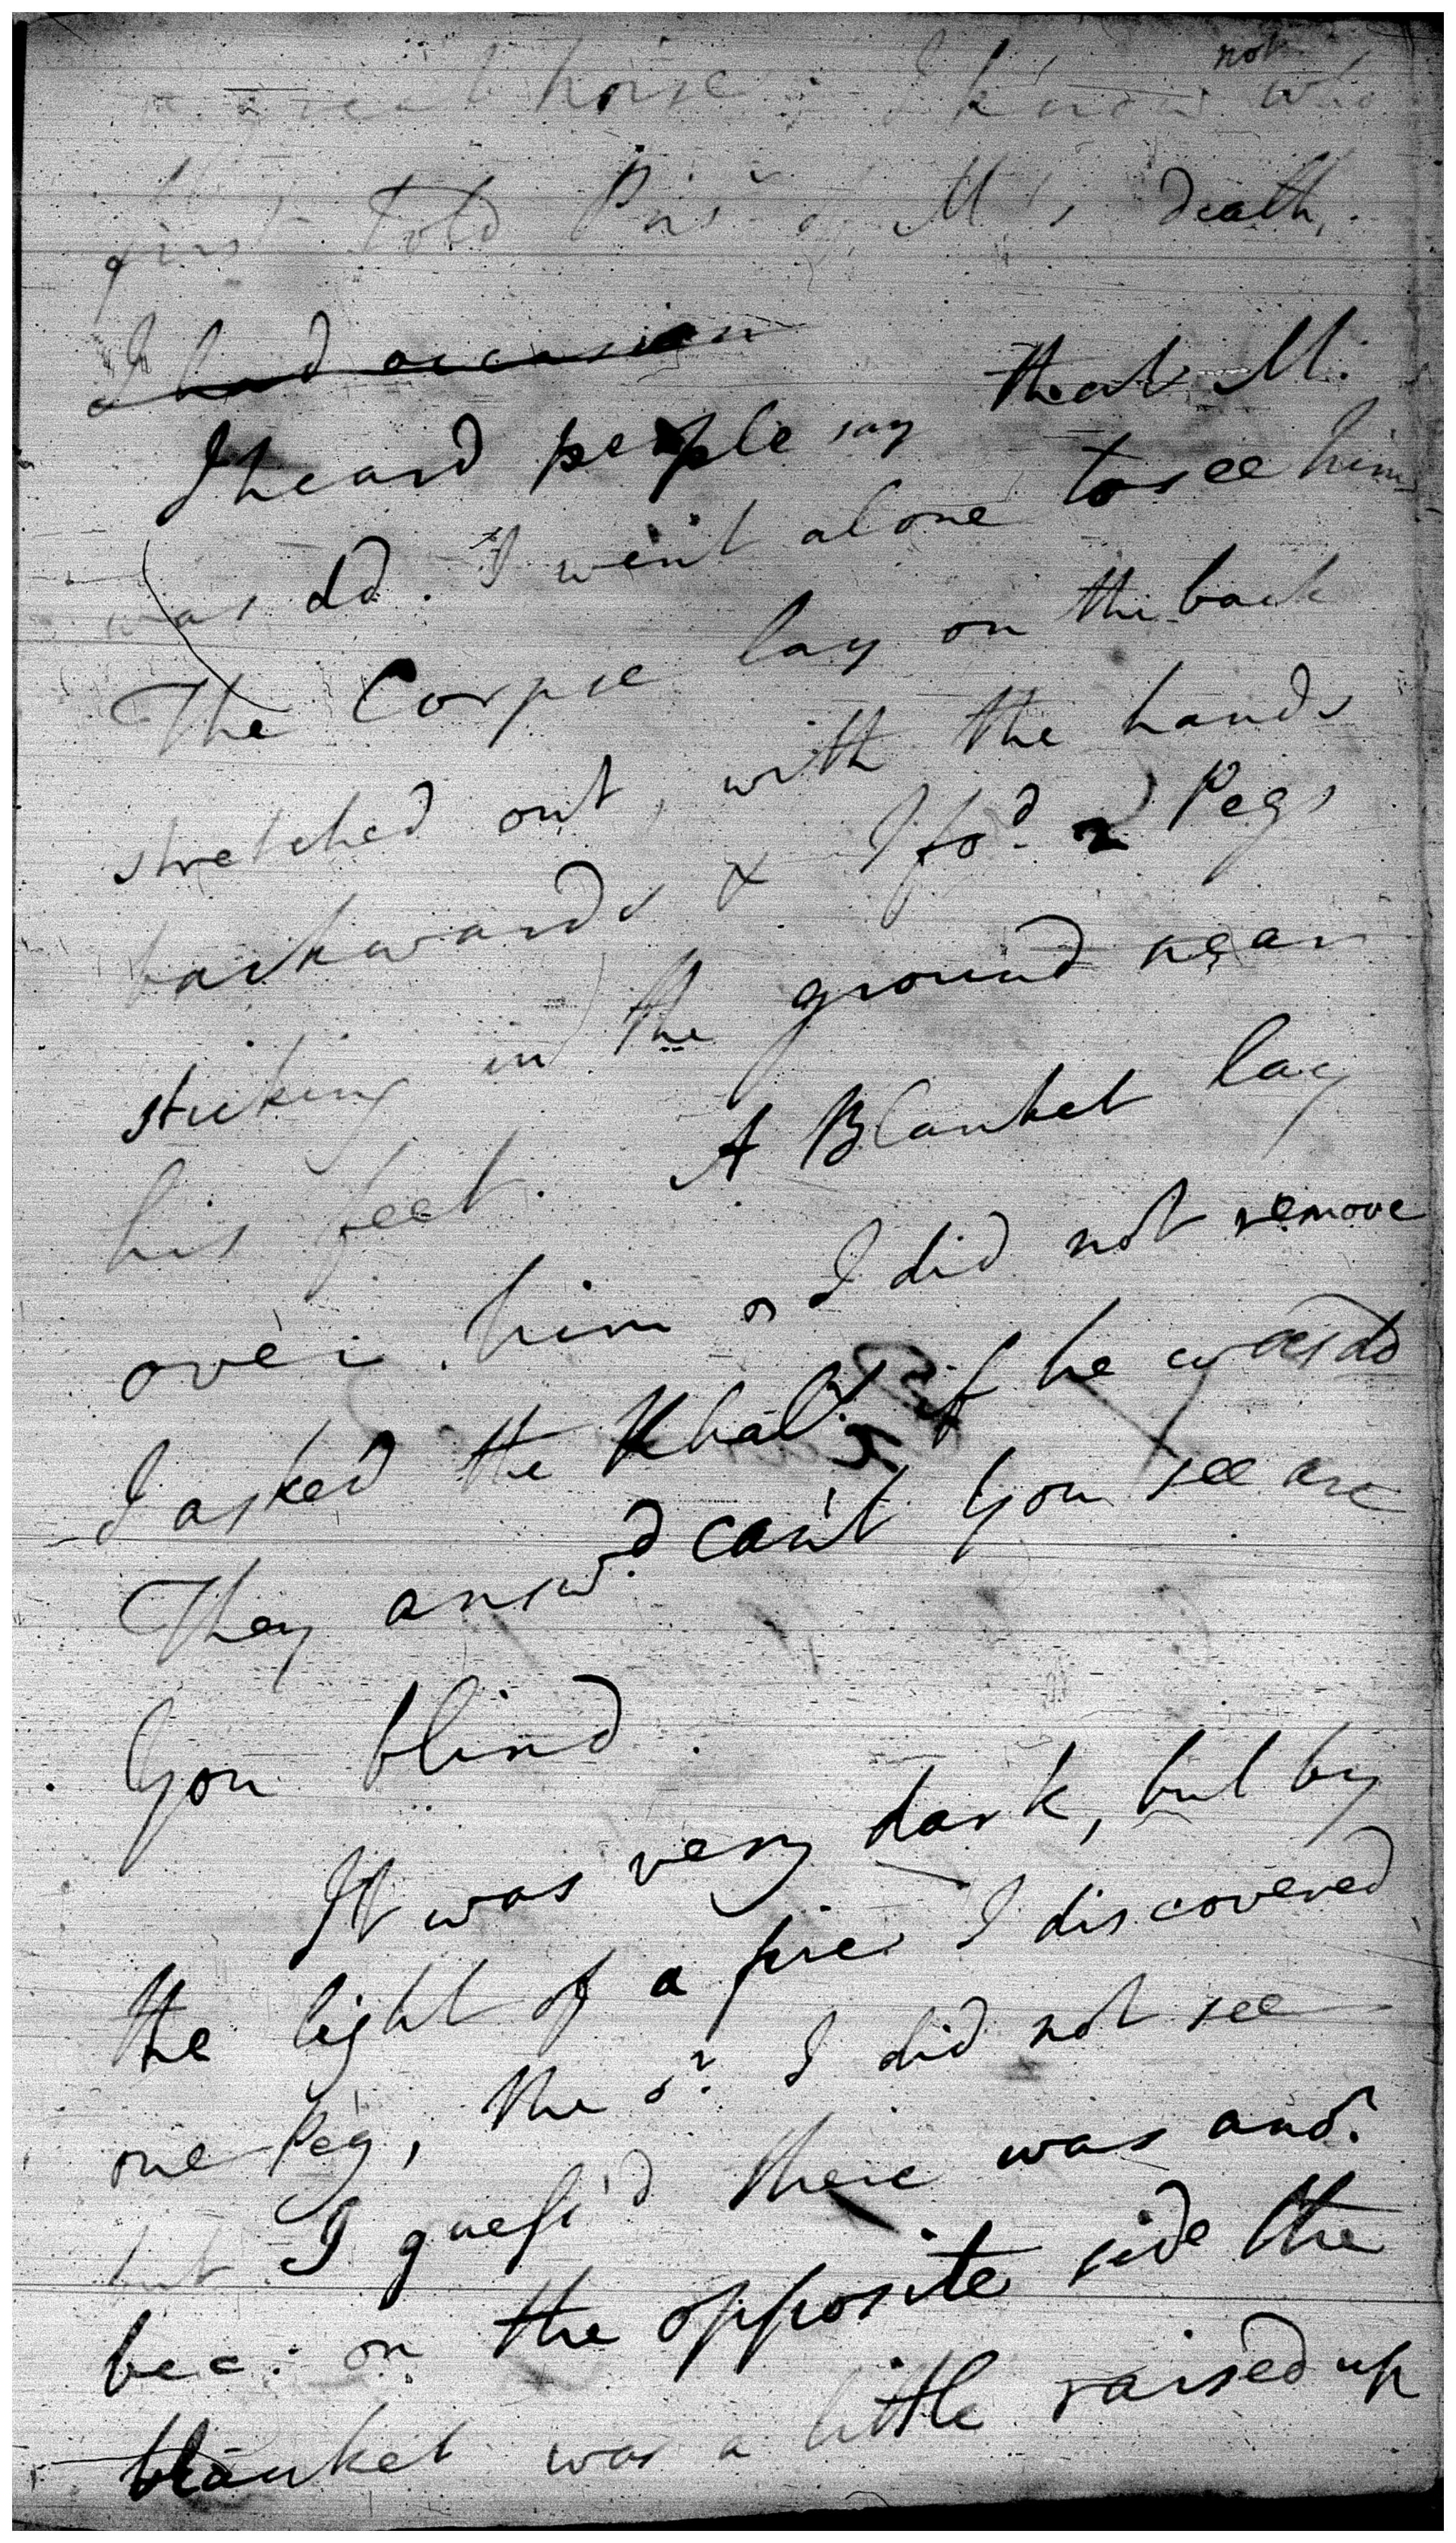 a great noise; I know not who
first told Pris.r of M.'s death.
I had occasion
I heard people say that M.
was dd. I went alone to see him
The Corpse lay on the back
stretched out, with the hands
backwards & I fo.d 2 Pegs
sticking in the ground near
his feet. A Blanket lay
over him I did not remove
I asked the if he was dd
They answ.d can't you see are
you blind.
It was very dark, but by
the light of a fire I discovered
one Peg, the I did not see
but I guess'd there was ano.r
bec: on the opposite side the
blanket was a little raised up